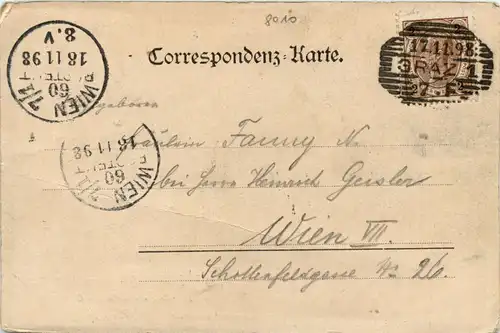 8010
Correspondenz-Karte.
17.11.98
GRAZ 1
WIEN 7/1
60
18 11 98
8.V
WIEN 7/1
60
18 11 98
Fräulein Fanny N.
bei Herrn Heinrich Geisler
Wien VII.
Schottenfeldgasse No 26.